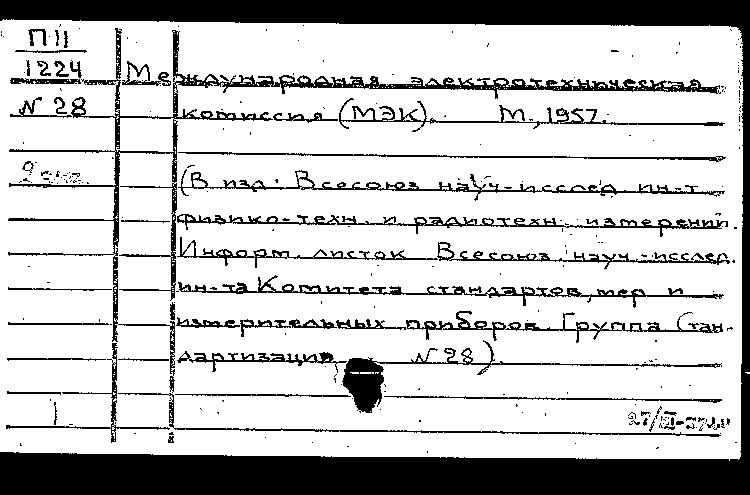 П11
1224
N 28
2 экз.
Международная электротехническая
комиссия (МЭК). М., 1957.
(В изд. Всесоюз науч-исслед. ин-т
физико-техн. и радиотехн. измерений.
Информ. листок Всесоюз. науч-исслед.
ин-та Комитета стандартов, мер и
измерительных приборов. Группа Стан-
дартизация, N 28).
1
27/III-57